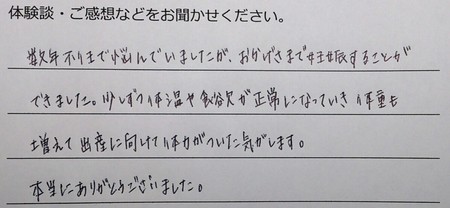 体験談・ご感想などをお聞かせください。
数年不妊で悩んでいましたが、おかげさまで妊娠することが
できました。少しずつ体温や食欲が正常になっていき体重も
増えて出産に向けて体力がついた気がします。
本当にありがとうございました。